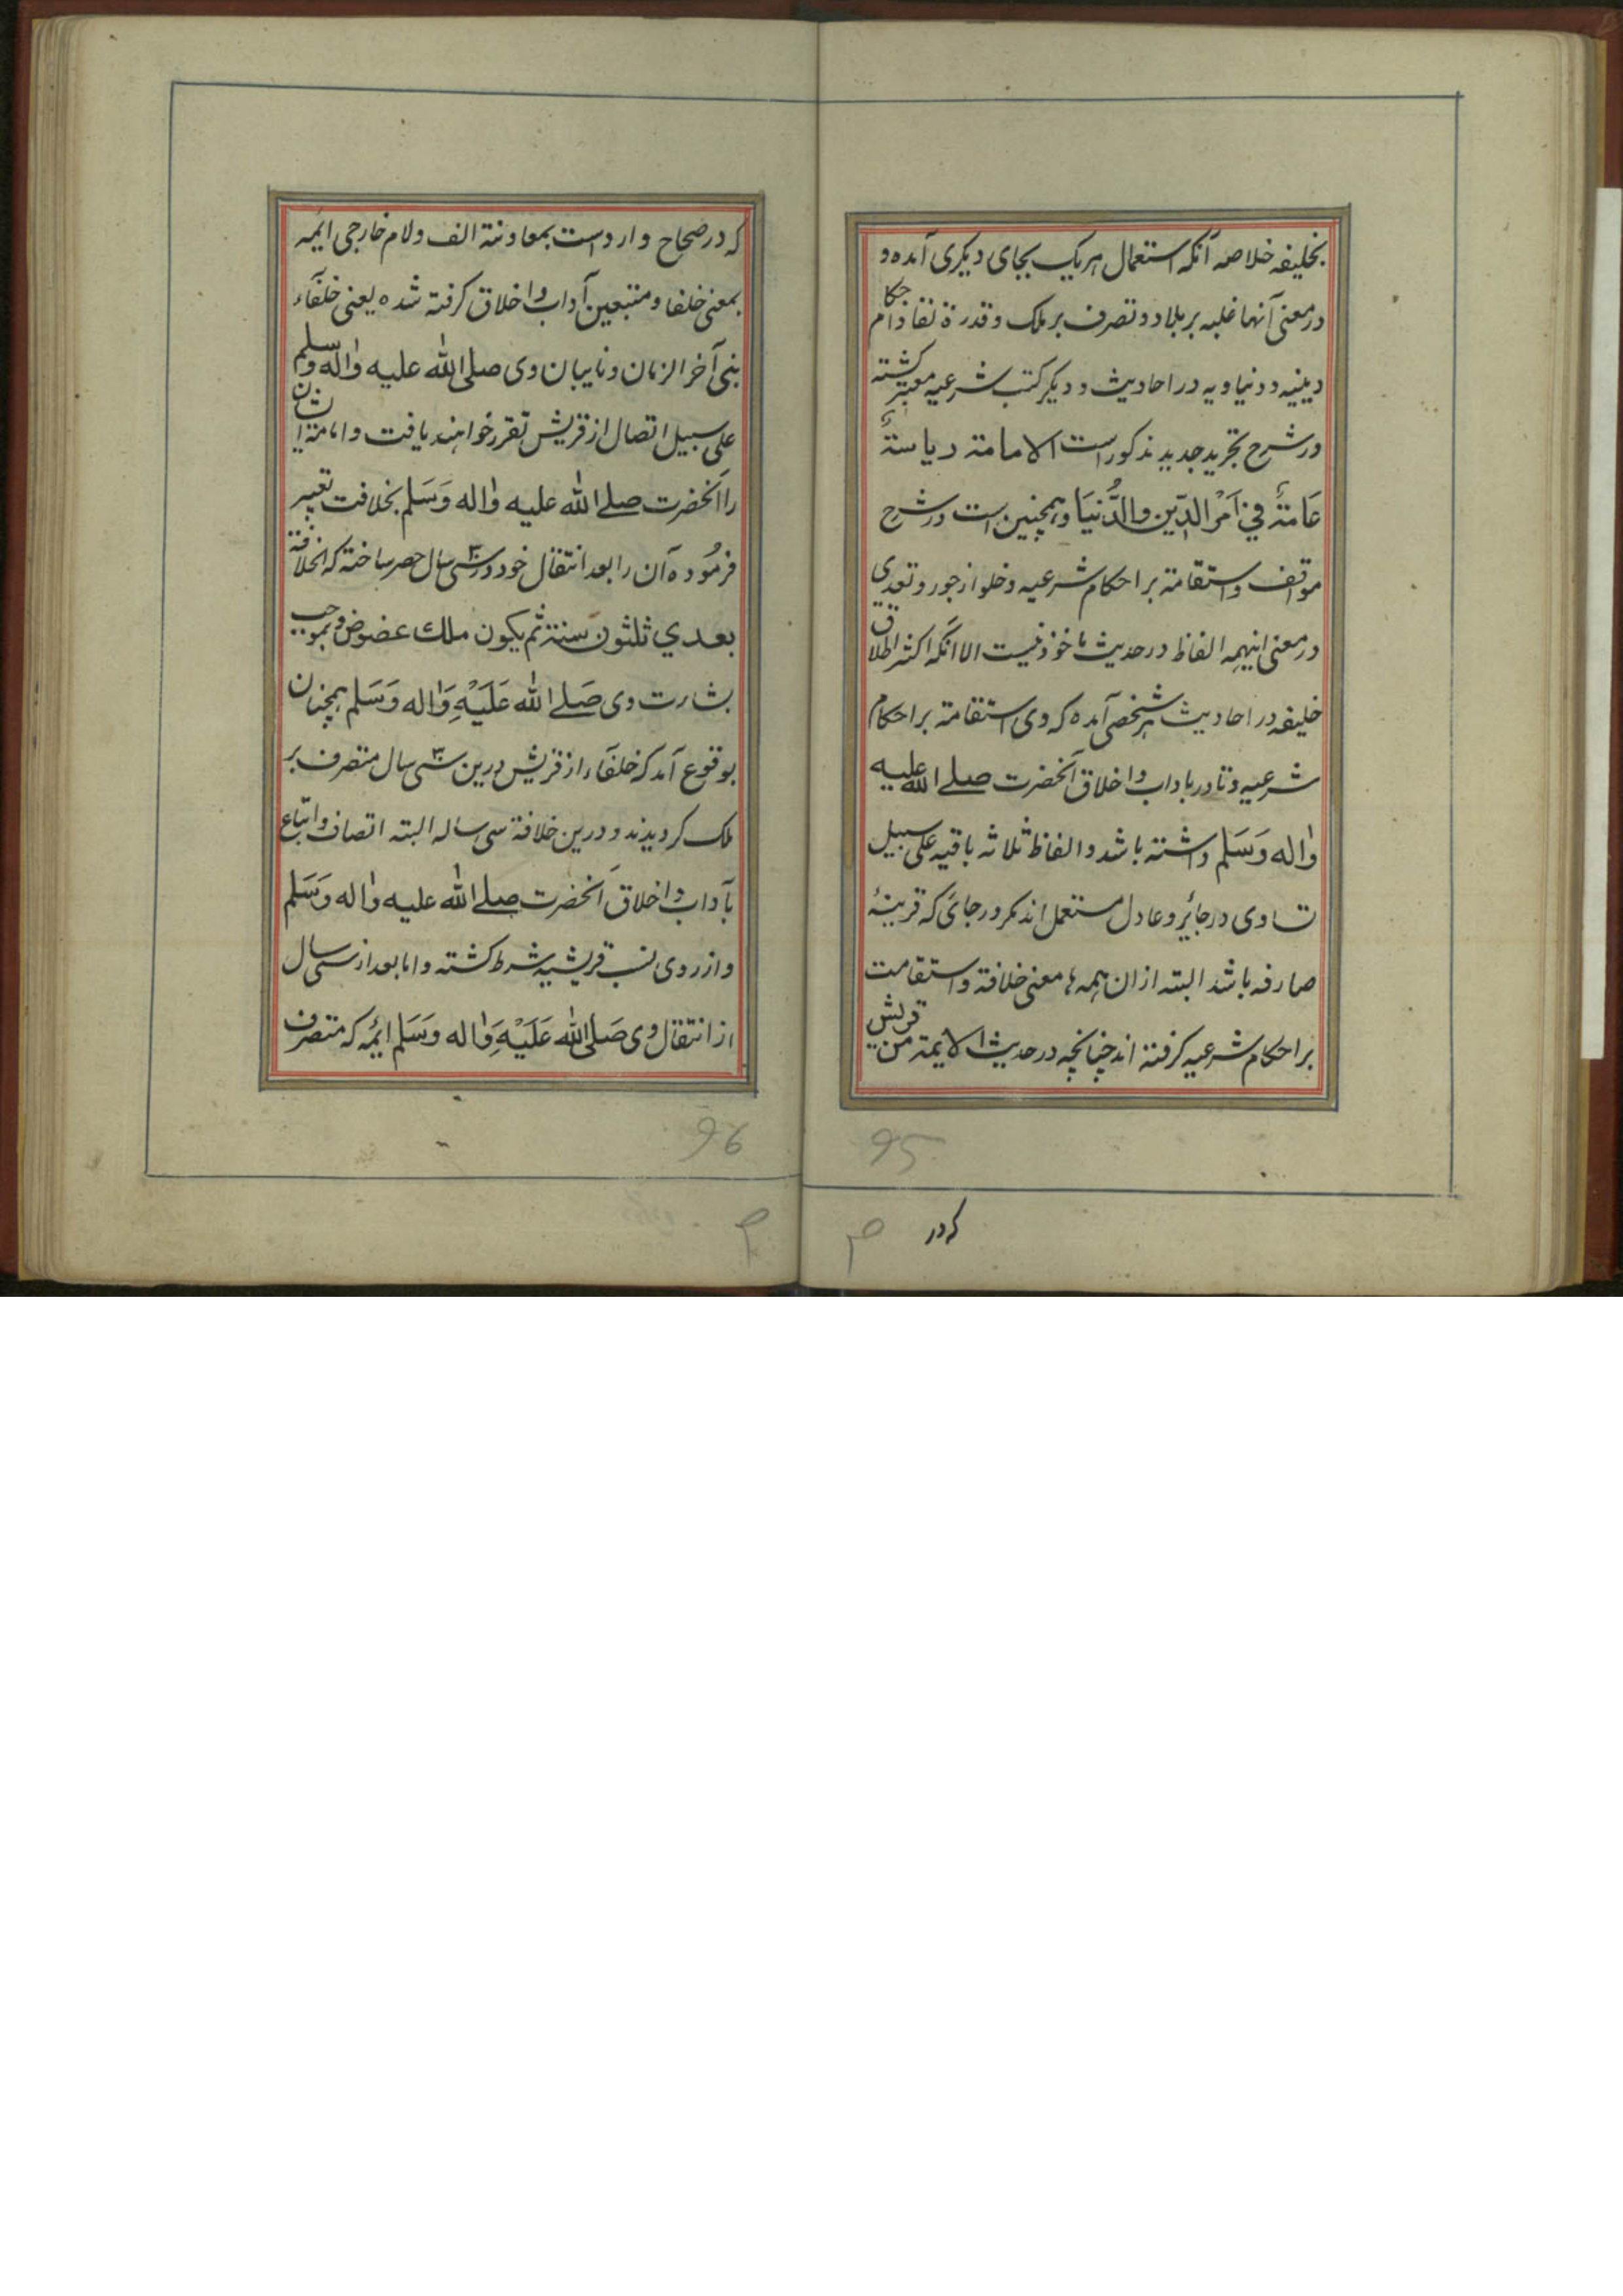 بخلیفه خلاصه آنکه استعمال هریک بجای دیکری آمده و
در معنی آنها غلبه بر بلاد و تصرف بر ملک و قدرة نفاذ احکام
دینیه و دنیاویه در احادیث و دیکر کتب شرعیه معتبر کشته
در شرح تجرید جدید مذکورست الامامة ریاسةٌ
عَامةٌ فِي اَمْرِ الدِّين والدُّنيَا و همچنین است در شرح
مواقف و استقامة بر احکام شرعیه و خلو از جور و تعدی
در معنی اینهمه الفاظ در حدیث ماخوذ نیست الا آنکه اکثر اطلاق
خلیفه در احادیث بر شخصی آمده که وی استقامة بر احکام
شرعیه و تادر باداب و اخلاق آنحضرت صلے الله علیه
واله وَسَلم داشته باشد و الفاظ ثلاثه باقیه علی سبیل
تساوی در جائر و عادل مستعمل اند مکر در جائی که قرینهٔ
صارفه باشد البته ازان همه معنی خلافة و استقامت
بر احکام شرعیه کرفته اند چنانچه در حدیث الایمة من قریش
95
که در
که در صحاح وارد است بمعاونة الف و لام خارجی ایمه
بمعنی خلفا و متبعین آداب و اخلاق کرفته شده یعنی خلفآء
نبی آخر الزمان و نایبان وی صلی الله علیه واله وسلم
علی سبیل اتصال از قریش تقرر خواهند یافت و امامة ایشان
را آنحضرت صلے الله علیه واله وَسَلم بخلافت تعبیر
فرمُوده آن را بعد انتقال خود در سی ۳۰ سال حصر ساخته که الخلافة
بعدي ثلثون سنة ثم يكون ملك عضوض و بموجب
بشارت وی صَلے الله عَلَیْهِ وَاله وَسَلم همچنان
بوقوع آمد که خلفآء از قریش درین سی ۳۰ سال متصرف بر
ملک کردیدند و درین خلافة سی ساله البته اتصاف و اتّباع
بآداب و اخلاق آنحضرت صلے الله علیه واله وَسَلم
و از روی نسب قریشیه شرط کشته و اما بعد از سی سال
از انتقال وی صَلی الله عَلَیْهِ وَاله وَسَلم ایمه که متصرف
96